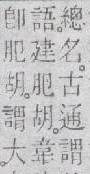 總名。古通謂
語。建肥胡。韋
卽肥胡。謂大